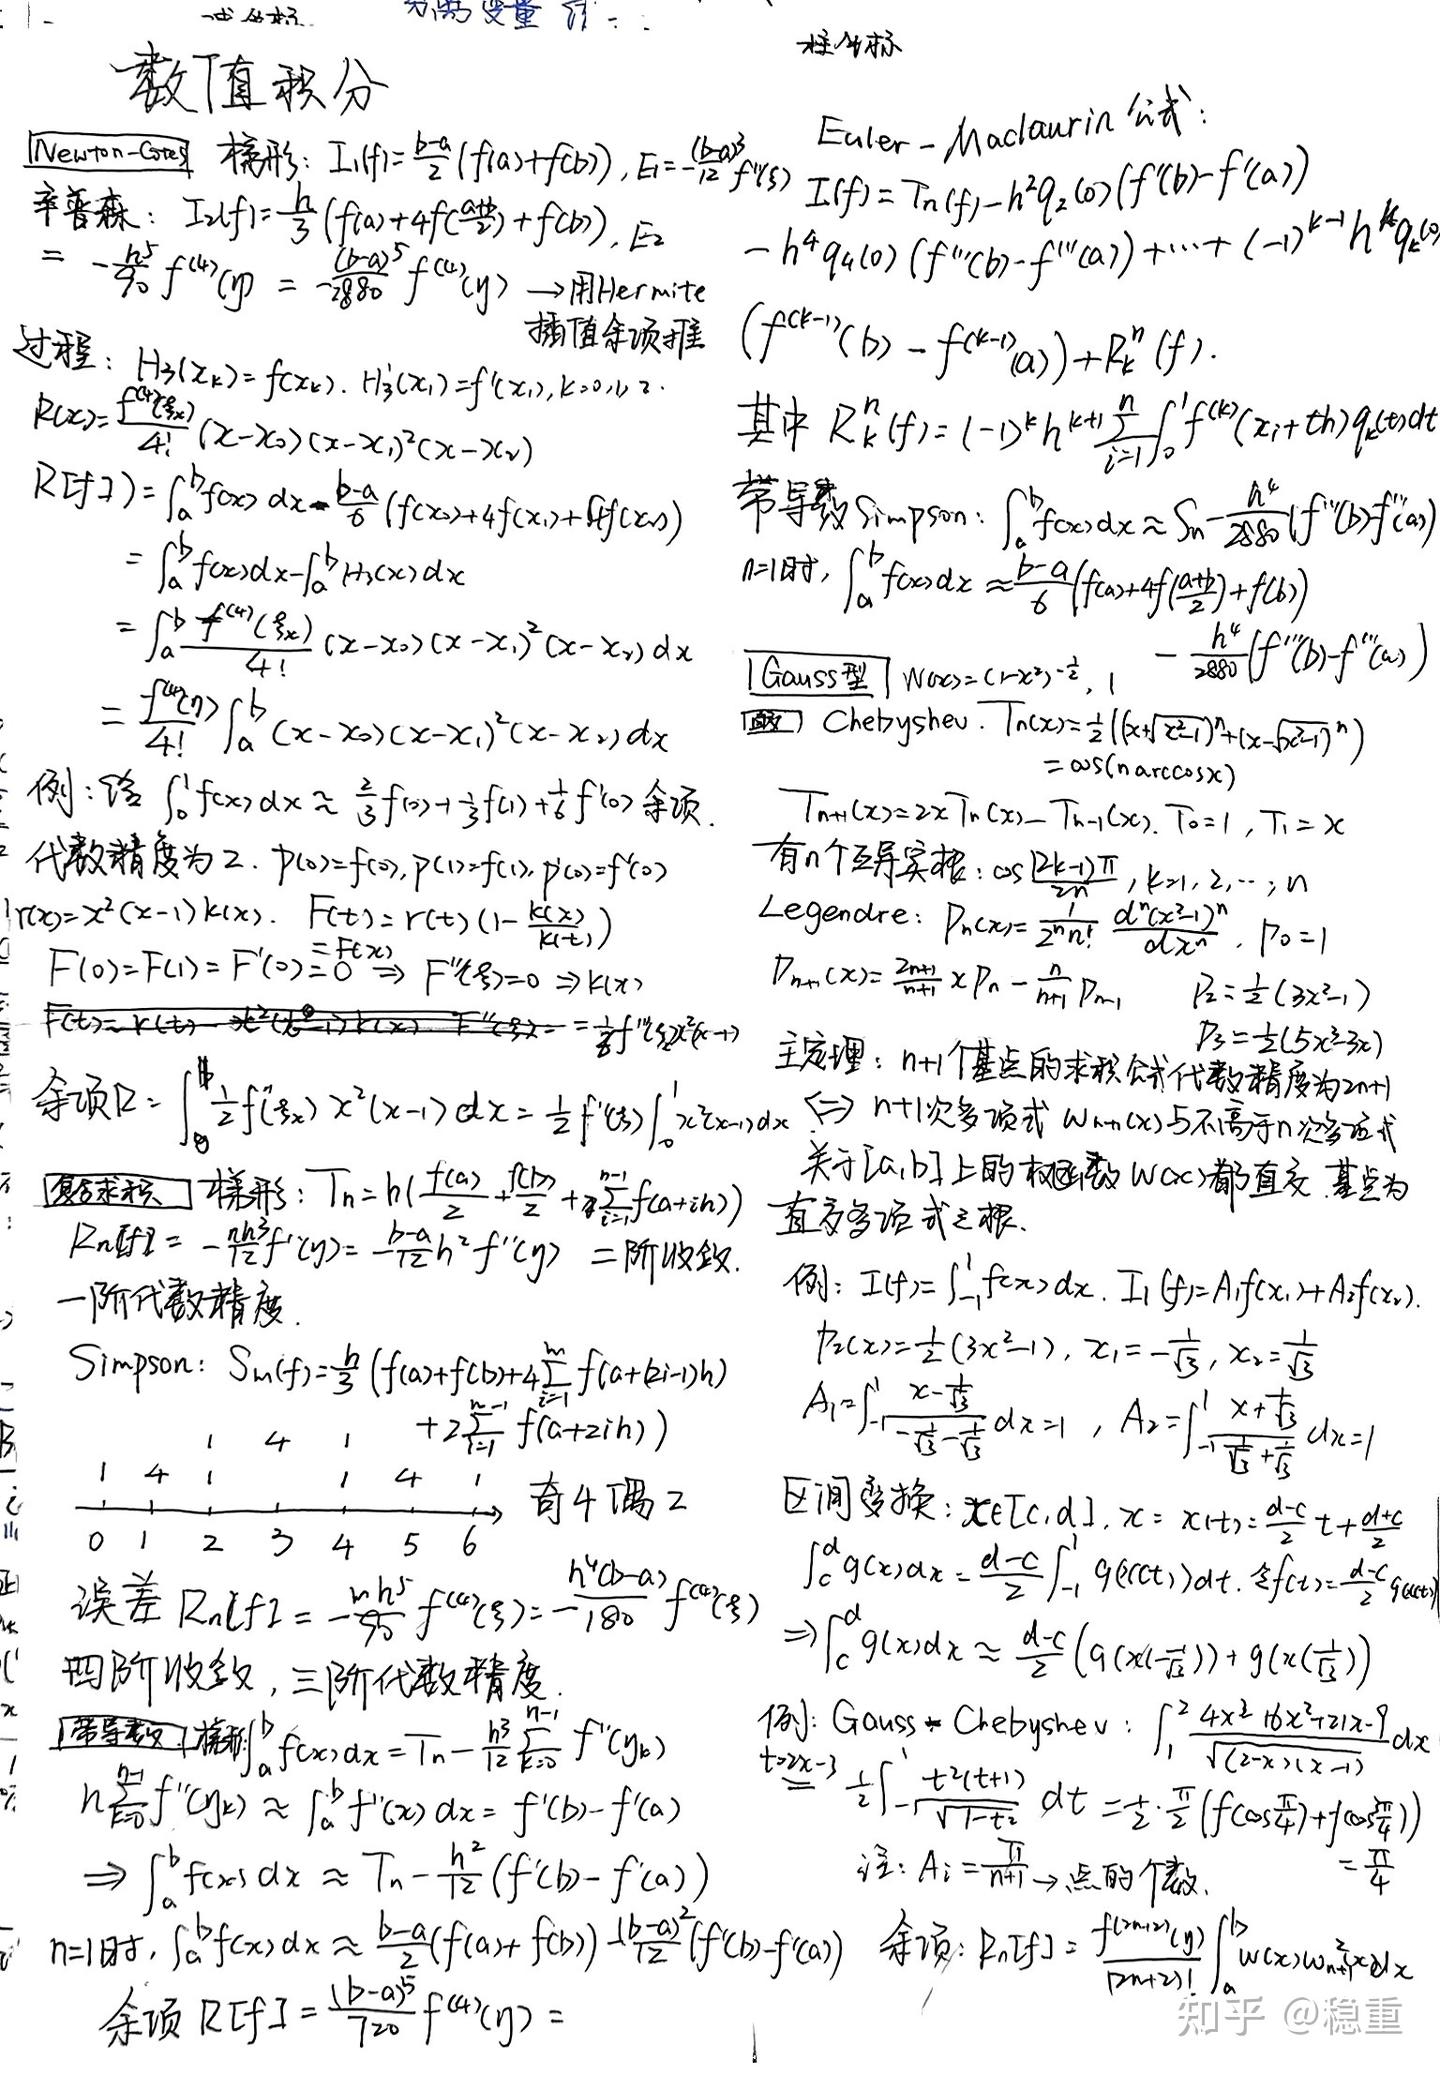 柱坐标
数值积分
Newton-Cotes 梯形: I₁(f)=\frac{b-a}{2}(f(a)+f(b)), E₁=-\frac{(b-a)^3}{12}f''(ξ)
辛普森: I₂(f)=\frac{h}{3}(f(a)+4f(\frac{a+b}{2})+f(b)), E₂
= -\frac{h^5}{90}f^{(4)}(η) = -\frac{(b-a)^5}{2880}f^{(4)}(η) → 用Hermite
插值余项推
过程: H₃(x_k)=f(x_k). H₃'(x₁)=f'(x₁), k=0,1,2.
R(x)=\frac{f^{(4)}(ξ_x)}{4!}(x-x₀)(x-x₁)²(x-x₂)
R[f]=∫_a^b f(x)dx-\frac{b-a}{6}(f(x₀)+4f(x₁)+f(x₂))
=∫_a^b f(x)dx-∫_a^b H₃(x)dx
=∫_a^b \frac{f^{(4)}(ξ_x)}{4!}(x-x₀)(x-x₁)²(x-x₂)dx
=\frac{f^{(4)}(η)}{4!}∫_a^b (x-x₀)(x-x₁)²(x-x₂)dx
例: 给 ∫_0^1 f(x)dx ≈ \frac{2}{3}f(0)+\frac{1}{3}f(1)+\frac{1}{6}f'(0) 余项.
代数精度为2. p(0)=f(0), p(1)=f(1), p'(0)=f'(0)
r(x)=x²(x-1)k(x). F(t)=r(t)(1-\frac{k(x)}{k(t)})
F(0)=F(1)=F'(0)=F(x)=0 ⇒ F'''(ξ)=0 ⇒ k(x)
余项R=∫_0^1 \frac{1}{2}f''(ξ_x)x²(x-1)dx=\frac{1}{2}f''(ξ)∫_0^1 x²(x-1)dx
复合求积 梯形: T_n=h(\frac{f(a)}{2}+\frac{f(b)}{2}+\sum_{i=1}^{n-1}f(a+ih))
R_n[f]=-\frac{nh^3}{12}f''(η)=-\frac{b-a}{12}h²f''(η) 二阶收敛.
一阶代数精度.
Simpson: S_m(f)=\frac{h}{3}(f(a)+f(b)+4\sum_{i=1}^{m}f(a+(2i-1)h)
+2\sum_{i=1}^{m-1}f(a+2ih))
1 4 1
1 4 1 1 4 1
奇4偶2
0 1 2 3 4 5 6
误差 R_n[f]=-\frac{mh^5}{90}f^{(4)}(ξ)=-\frac{h^4(b-a)}{180}f^{(4)}(ξ)
四阶收敛, 三阶代数精度.
带导数 梯形 ∫_a^b f(x)dx=T_n-\frac{h^3}{12}\sum_{k=0}^{n-1}f''(η_k)
h\sum_{k=0}^{n-1}f''(η_k)≈∫_a^b f''(x)dx=f'(b)-f'(a)
⇒∫_a^b f(x)dx≈T_n-\frac{h^2}{12}(f'(b)-f'(a))
n=1时, ∫_a^b f(x)dx≈\frac{b-a}{2}(f(a)+f(b))-\frac{(b-a)^2}{12}(f'(b)-f'(a))
余项R[f]=\frac{(b-a)^5}{720}f^{(4)}(η)=
Euler-Maclaurin公式:
I(f)=T_n(f)-h²q₂(0)(f'(b)-f'(a))
-h⁴q₄(0)(f'''(b)-f'''(a))+⋯+(-1)^{k-1}h^k q_k(0)
(f^{(k-1)}(b)-f^{(k-1)}(a))+R_k^n(f).
其中 R_k^n(f)=(-1)^k h^{k+1}\sum_{i=1}^{n}∫_0^1 f^{(k)}(x_i+th)q_k(t)dt
带导数Simpson: ∫_a^b f(x)dx≈S_n-\frac{h^4}{2880}(f'''(b)-f'''(a))
n=1时, ∫_a^b f(x)dx≈\frac{b-a}{6}(f(a)+4f(\frac{a+b}{2})+f(b))
-\frac{h^4}{2880}(f'''(b)-f'''(a))
Gauss型 W(x)=(1-x²)^{-\frac{1}{2}}, 1
Chebyshev. T_n(x)=\frac{1}{2}((x+\sqrt{x²-1})^n+(x-\sqrt{x²-1})^n)
=cos(n arccosx)
T_{n+1}(x)=2xT_n(x)-T_{n-1}(x). T₀=1, T₁=x
有n个互异实根: cos\frac{(2k-1)π}{2n}, k=1,2,⋯,n
Legendre: P_n(x)=\frac{1}{2^n n!}\frac{d^n(x²-1)^n}{dx^n}, P₀=1
P_{n+1}(x)=\frac{2n+1}{n+1}xP_n-\frac{n}{n+1}P_{n-1} P₂=\frac{1}{2}(3x²-1)
P₃=\frac{1}{2}(5x³-3x)
主定理: n+1个基点的求积公式代数精度为2n+1
⇔ n+1次多项式 W_{n+1}(x)与不高于n次多项式
关于[a,b]上的权函数W(x)都正交 基点为
直交多项式之根.
例: I(f)=∫_{-1}^1 f(x)dx. I₁(f)=A₁f(x₁)+A₂f(x₂).
P₂(x)=\frac{1}{2}(3x²-1), x₁=-\frac{1}{\sqrt{3}}, x₂=\frac{1}{\sqrt{3}}
A₁=∫_{-1}^1 \frac{x-\frac{1}{\sqrt3}}{-\frac{1}{\sqrt3}-\frac{1}{\sqrt3}}dx=1, A₂=∫_{-1}^1 \frac{x+\frac{1}{\sqrt3}}{\frac{1}{\sqrt3}+\frac{1}{\sqrt3}}dx=1
区间变换: x∈[c,d], x=x(t)=\frac{d-c}{2}t+\frac{d+c}{2}
∫_c^d g(x)dx=\frac{d-c}{2}∫_{-1}^1 g(x(t))dt. 令f(t)=\frac{d-c}{2}g(x(t))
⇒∫_c^d g(x)dx≈\frac{d-c}{2}(g(x(-\frac{1}{\sqrt3}))+g(x(\frac{1}{\sqrt3})))
例: Gauss-Chebyshev: ∫_1^2 \frac{4x²-16x²+21x-9}{\sqrt{(2-x)(x-1)}}dx
t=2x-3 = \frac{1}{2}∫_{-1}^1 \frac{t²(t+1)}{\sqrt{1-t²}}dt=\frac{1}{2}·\frac{π}{2}(f(cos\frac{π}{4})+f(cos\frac{3π}{4}))
注: A_i=\frac{π}{n+1}→点的个数. =\frac{π}{4}
余项: R_n[f]=\frac{f^{(2n+2)}(η)}{(2n+2)!}∫_a^b W(x)W_{n+1}^2(x)dx
知乎 @稳重